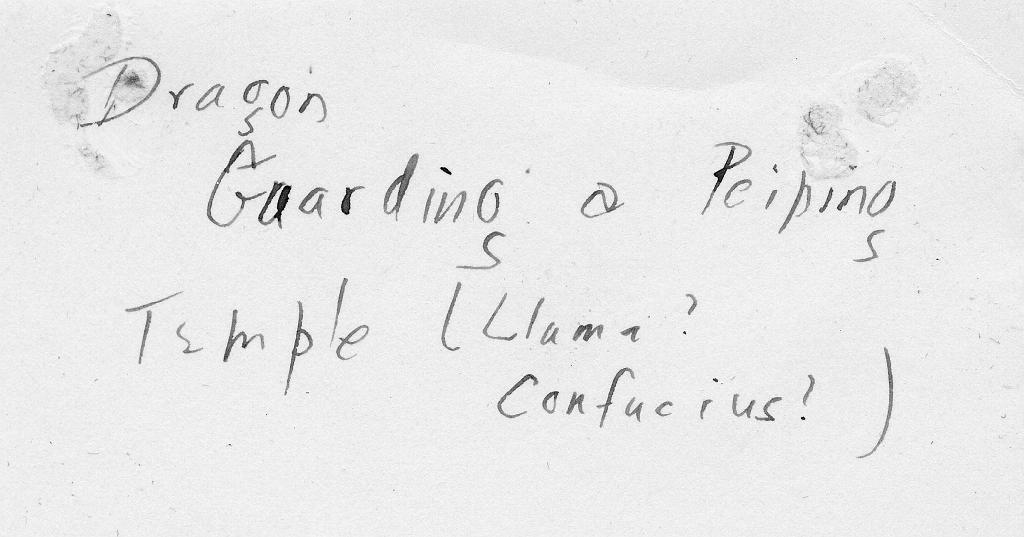 Dragon
Guarding a Peiping
Temple (Llama?
Confucius?)